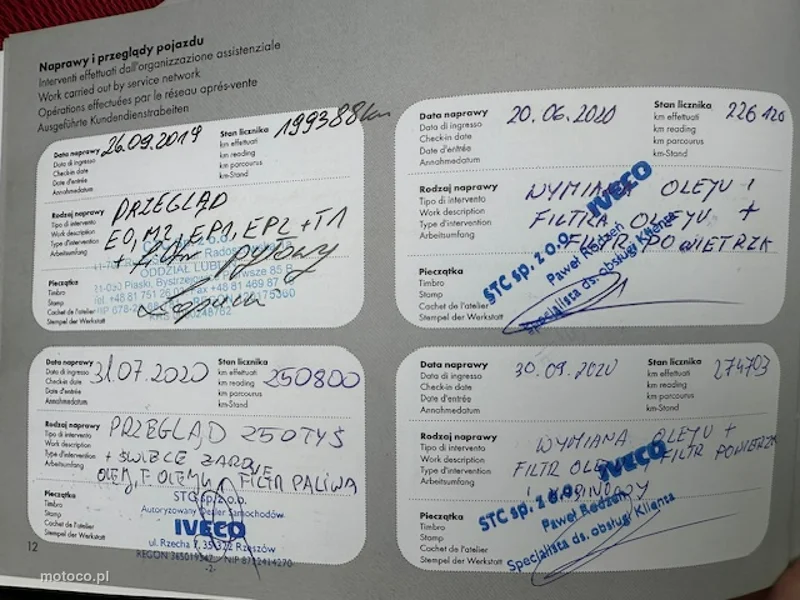 Naprawy i przeglądy pojazdu
Interventi effettuati dall'organizzazione assistenziale
Work carried out by service network
Opérations effectuées par le réseau après-vente
Ausgeführte Kundendienstrabeiten
Data naprawy 26.09.2019 Stan licznika 199388 km
Data di ingresso km effettuati
Check-in date km reading
Date d'entrée km parcourus
Annahmedatum km-Stand
Rodzaj naprawy PRZEGLĄD
Tipo di intervento
Work description EO, M2, EP1, EP2 + T1
Type d'intervention + filtr pyłowy
Arbeitsumfang
Pieczątka
Timbro
Stamp
Cachet de l'atelier
Stempel der Werkstatt
ODDZIAŁ
21-050 Piaski, Bystrzejowice Pierwsze 85 B
Data naprawy 20.06.2020 Stan licznika 226120
Data di ingresso km effettuati
Check-in date km reading
Date d'entrée km parcourus
Annahmedatum km-Stand
Rodzaj naprawy WYMIANA OLEJU I
Tipo di intervento
Work description FILTRA OLEJU +
Type d'intervention FILTR POWIETRZA
Arbeitsumfang
Pieczątka
Timbro
Stamp
Cachet de l'atelier
Stempel der Werkstatt
IVECO
STC sp. z o.o.
Paweł Redzeń
Specjalista ds. obsługi Klienta
Data naprawy 31.07.2020 Stan licznika 250800
Data di ingresso km effettuati
Check-in date km reading
Date d'entrée km parcourus
Annahmedatum km-Stand
Rodzaj naprawy PRZEGLĄD 250TYŚ
Tipo di intervento
Work description + ŚWIECE ŻAROWE
Type d'intervention OLEJ, F. OLEJU, FILTR PALIWA
Arbeitsumfang
Pieczątka
Timbro
Stamp
Cachet de l'atelier
Stempel der Werkstatt
STC sp. z o.o.
Autoryzowany Dealer Samochodów
IVECO
ul. Rzecha 7, 35-322 Rzeszów
-2-
Data naprawy 30.09.2020 Stan licznika 274703
Data di ingresso km effettuati
Check-in date km reading
Date d'entrée km parcourus
Annahmedatum km-Stand
Rodzaj naprawy WYMIANA OLEJU +
Tipo di intervento
Work description FILTR OLEJU FILTR POWIETRZA
Type d'intervention I KABINOWY
Arbeitsumfang
Pieczątka
Timbro
Stamp
Cachet de l'atelier
Stempel der Werkstatt
IVECO
STC sp. z o.o.
Paweł Redzeń
Specjalista ds. obsługi Klienta
12
motoco.pl